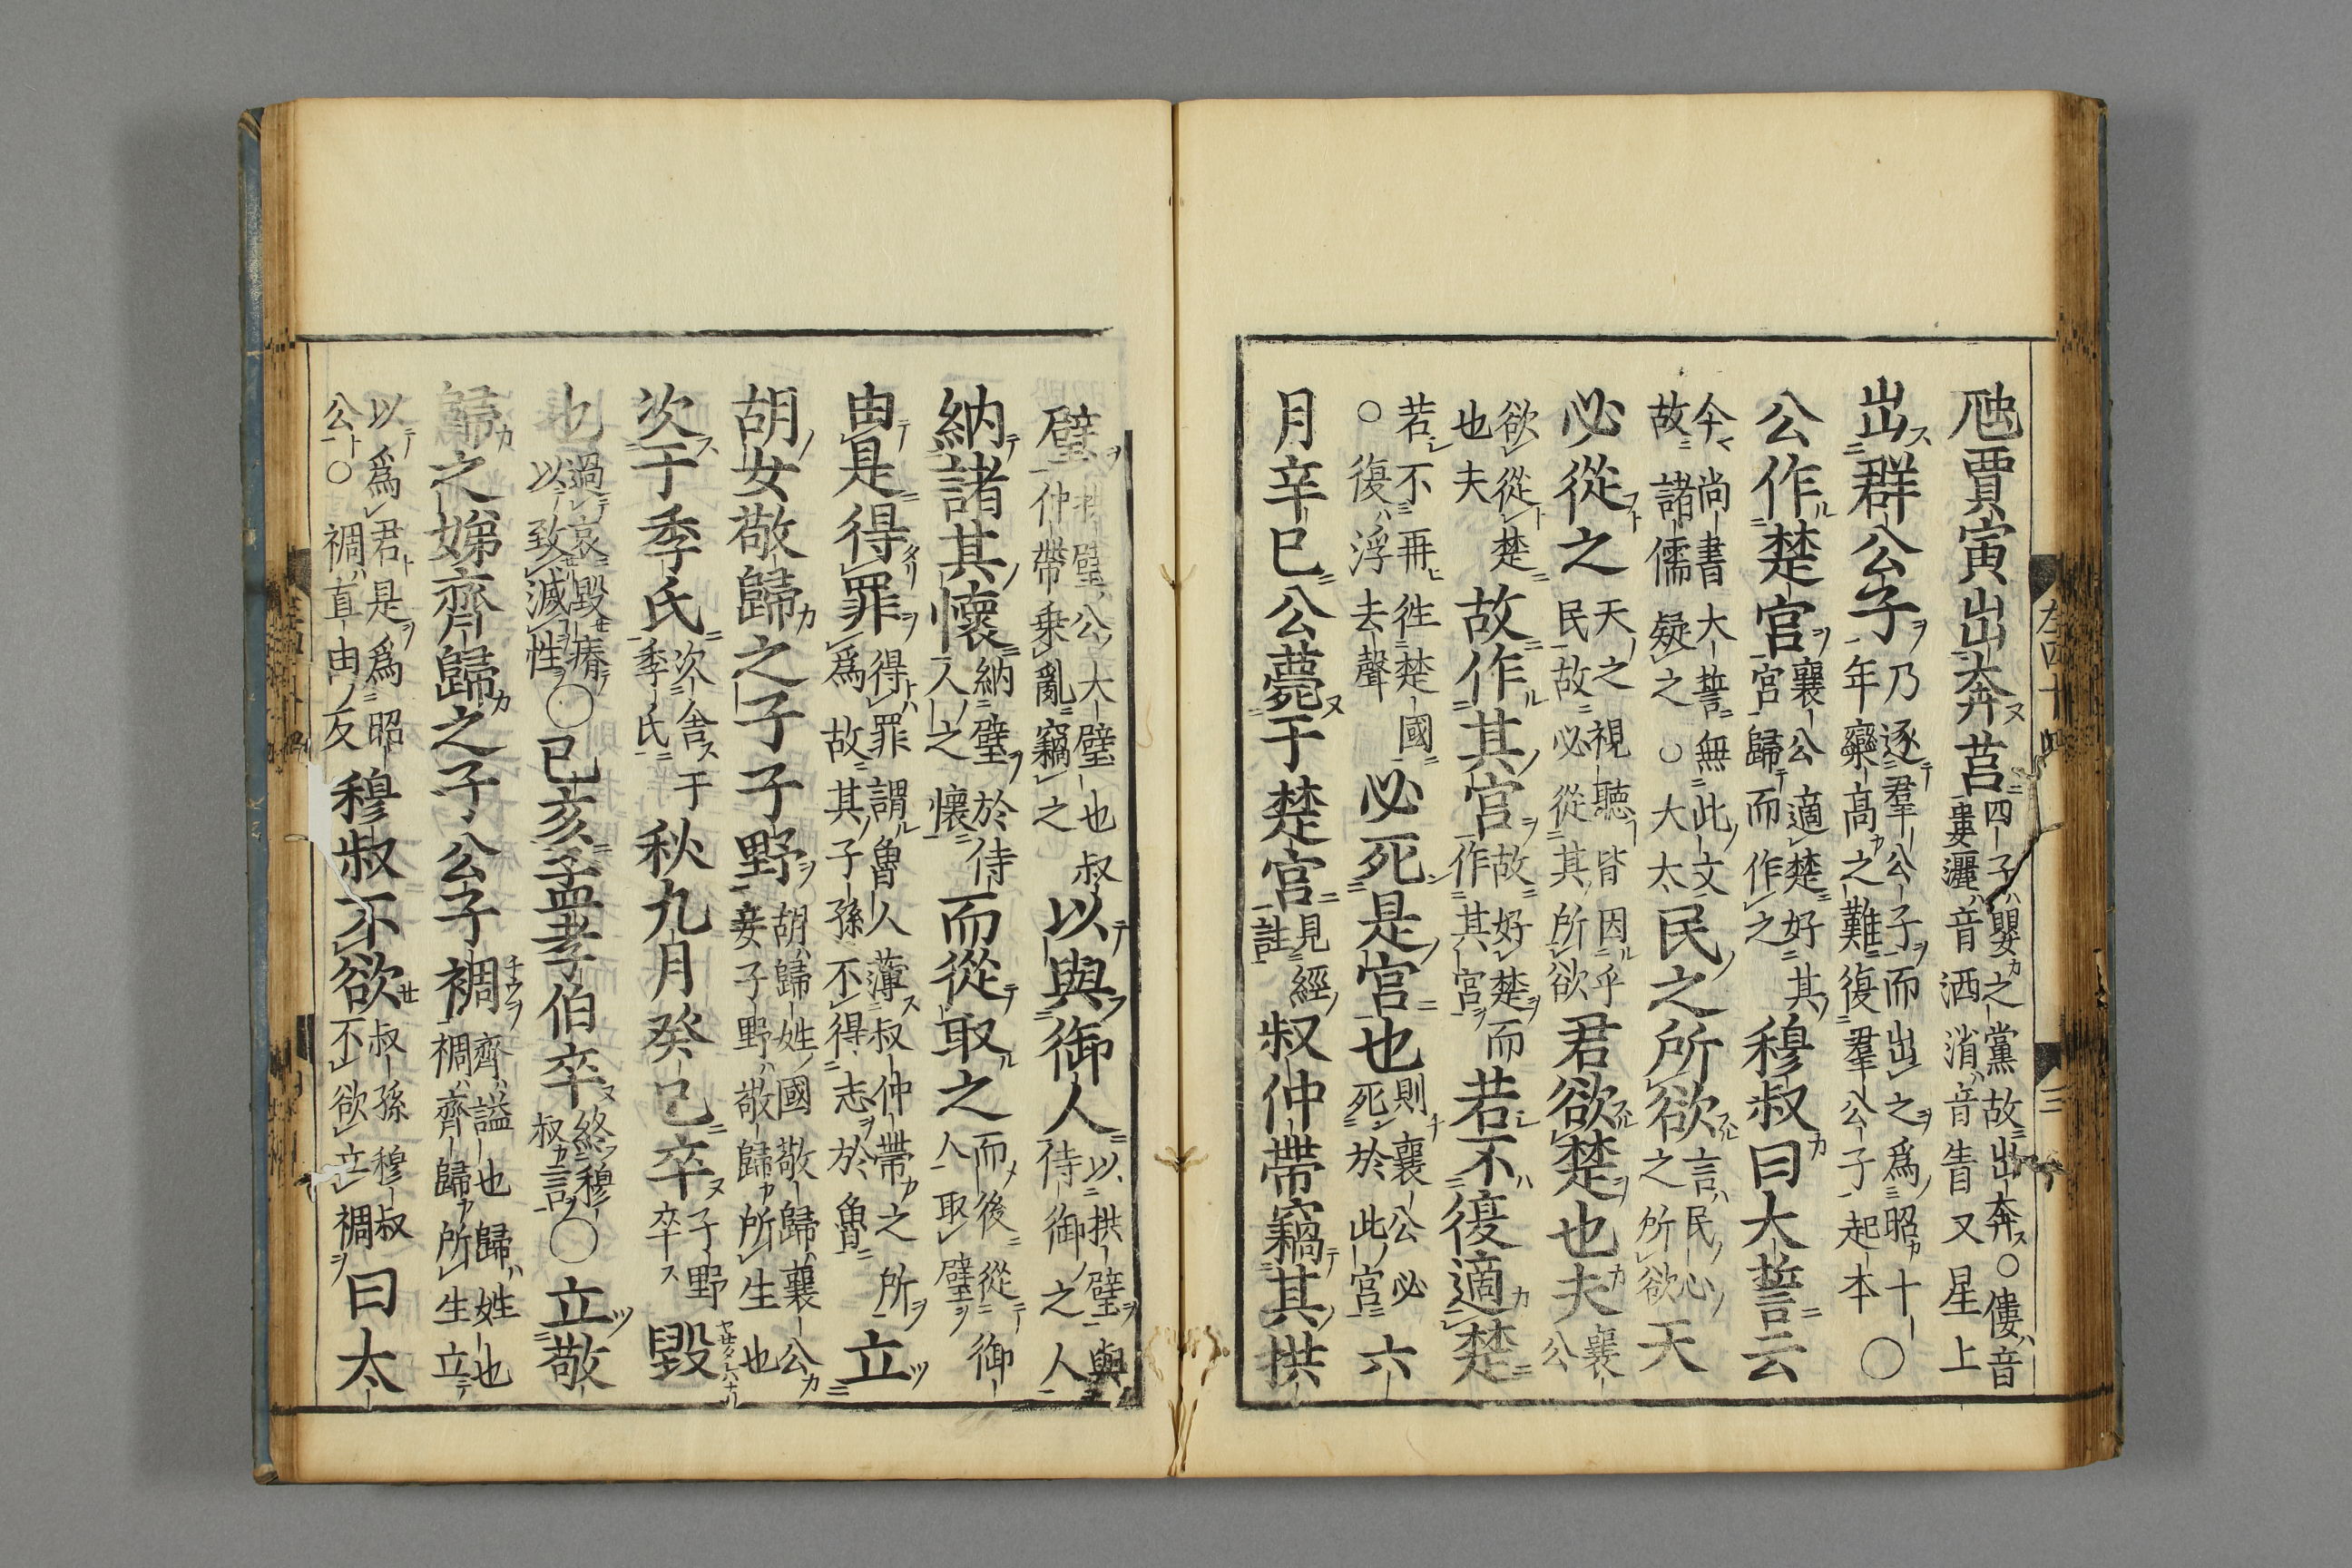 左四十 三
虺賈寅出奔莒四子嬰之黨故出奔○僂音婁灑音洒消音眚又星上
出群公子乃逐羣公子而出之爲昭十年欒高之難復羣公子起本○
公作楚宮襄公適楚好其宮歸而作之穆叔曰大誓云
今尚書大誓無此文故諸儒疑之○大太民之所欲言民心之所欲天
必從之天之視聽皆因乎民故必從其所欲君欲楚也夫襄公
欲從楚也夫故作其宮故好楚而作其宮若不復適楚
若不再徃楚國○復浮去聲必死是宮也則襄公必死於此宮六
月辛巳公薨于楚宮見經註叔仲帶竊其拱
璧拱璧公大璧也叔仲帶乘亂竊之以與御人以拱璧與侍御之人
納諸其懷納璧於侍人之懷而從取之而後從御人取璧
由是得罪得罪謂魯人薄叔仲帶之所爲故其子孫不得志於魯立
胡女敬歸之子子野胡歸姓國敬歸襄公妾子野敬歸所生也
次于季氏次舍于季氏秋九月癸巳卒子野卒毀
也過哀毀瘠以致滅性○己亥孟孝伯卒終穆叔言○立敬
歸之娣齊歸之子公子裯齊謚也歸姓也裯齊歸所生立
以爲君是爲昭公○裯直由反穆叔不欲叔孫穆叔不欲立裯曰太